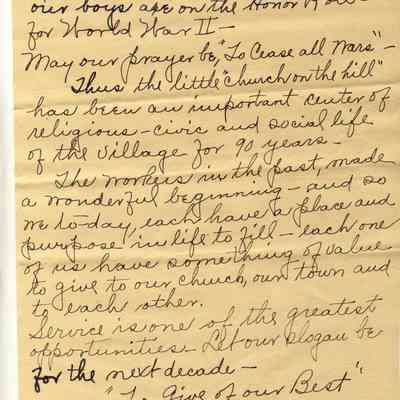 our boys are on the Honor Roll
for World War II —
May our prayer be, "To Cease all Wars" —
Thus the little "church on the hill"
has been an important center of
religious – civic and social life
of the village for 90 years –
The workers in the past, made
a wonderful beginning – and so
we to-day, each have a place and
purpose in life to fill – each one
of us have something of value
to give to our church, our town and
to each other.
Service is one of the greatest
opportunities – Let our slogan be
for the next decade –
"To Give of our Best"